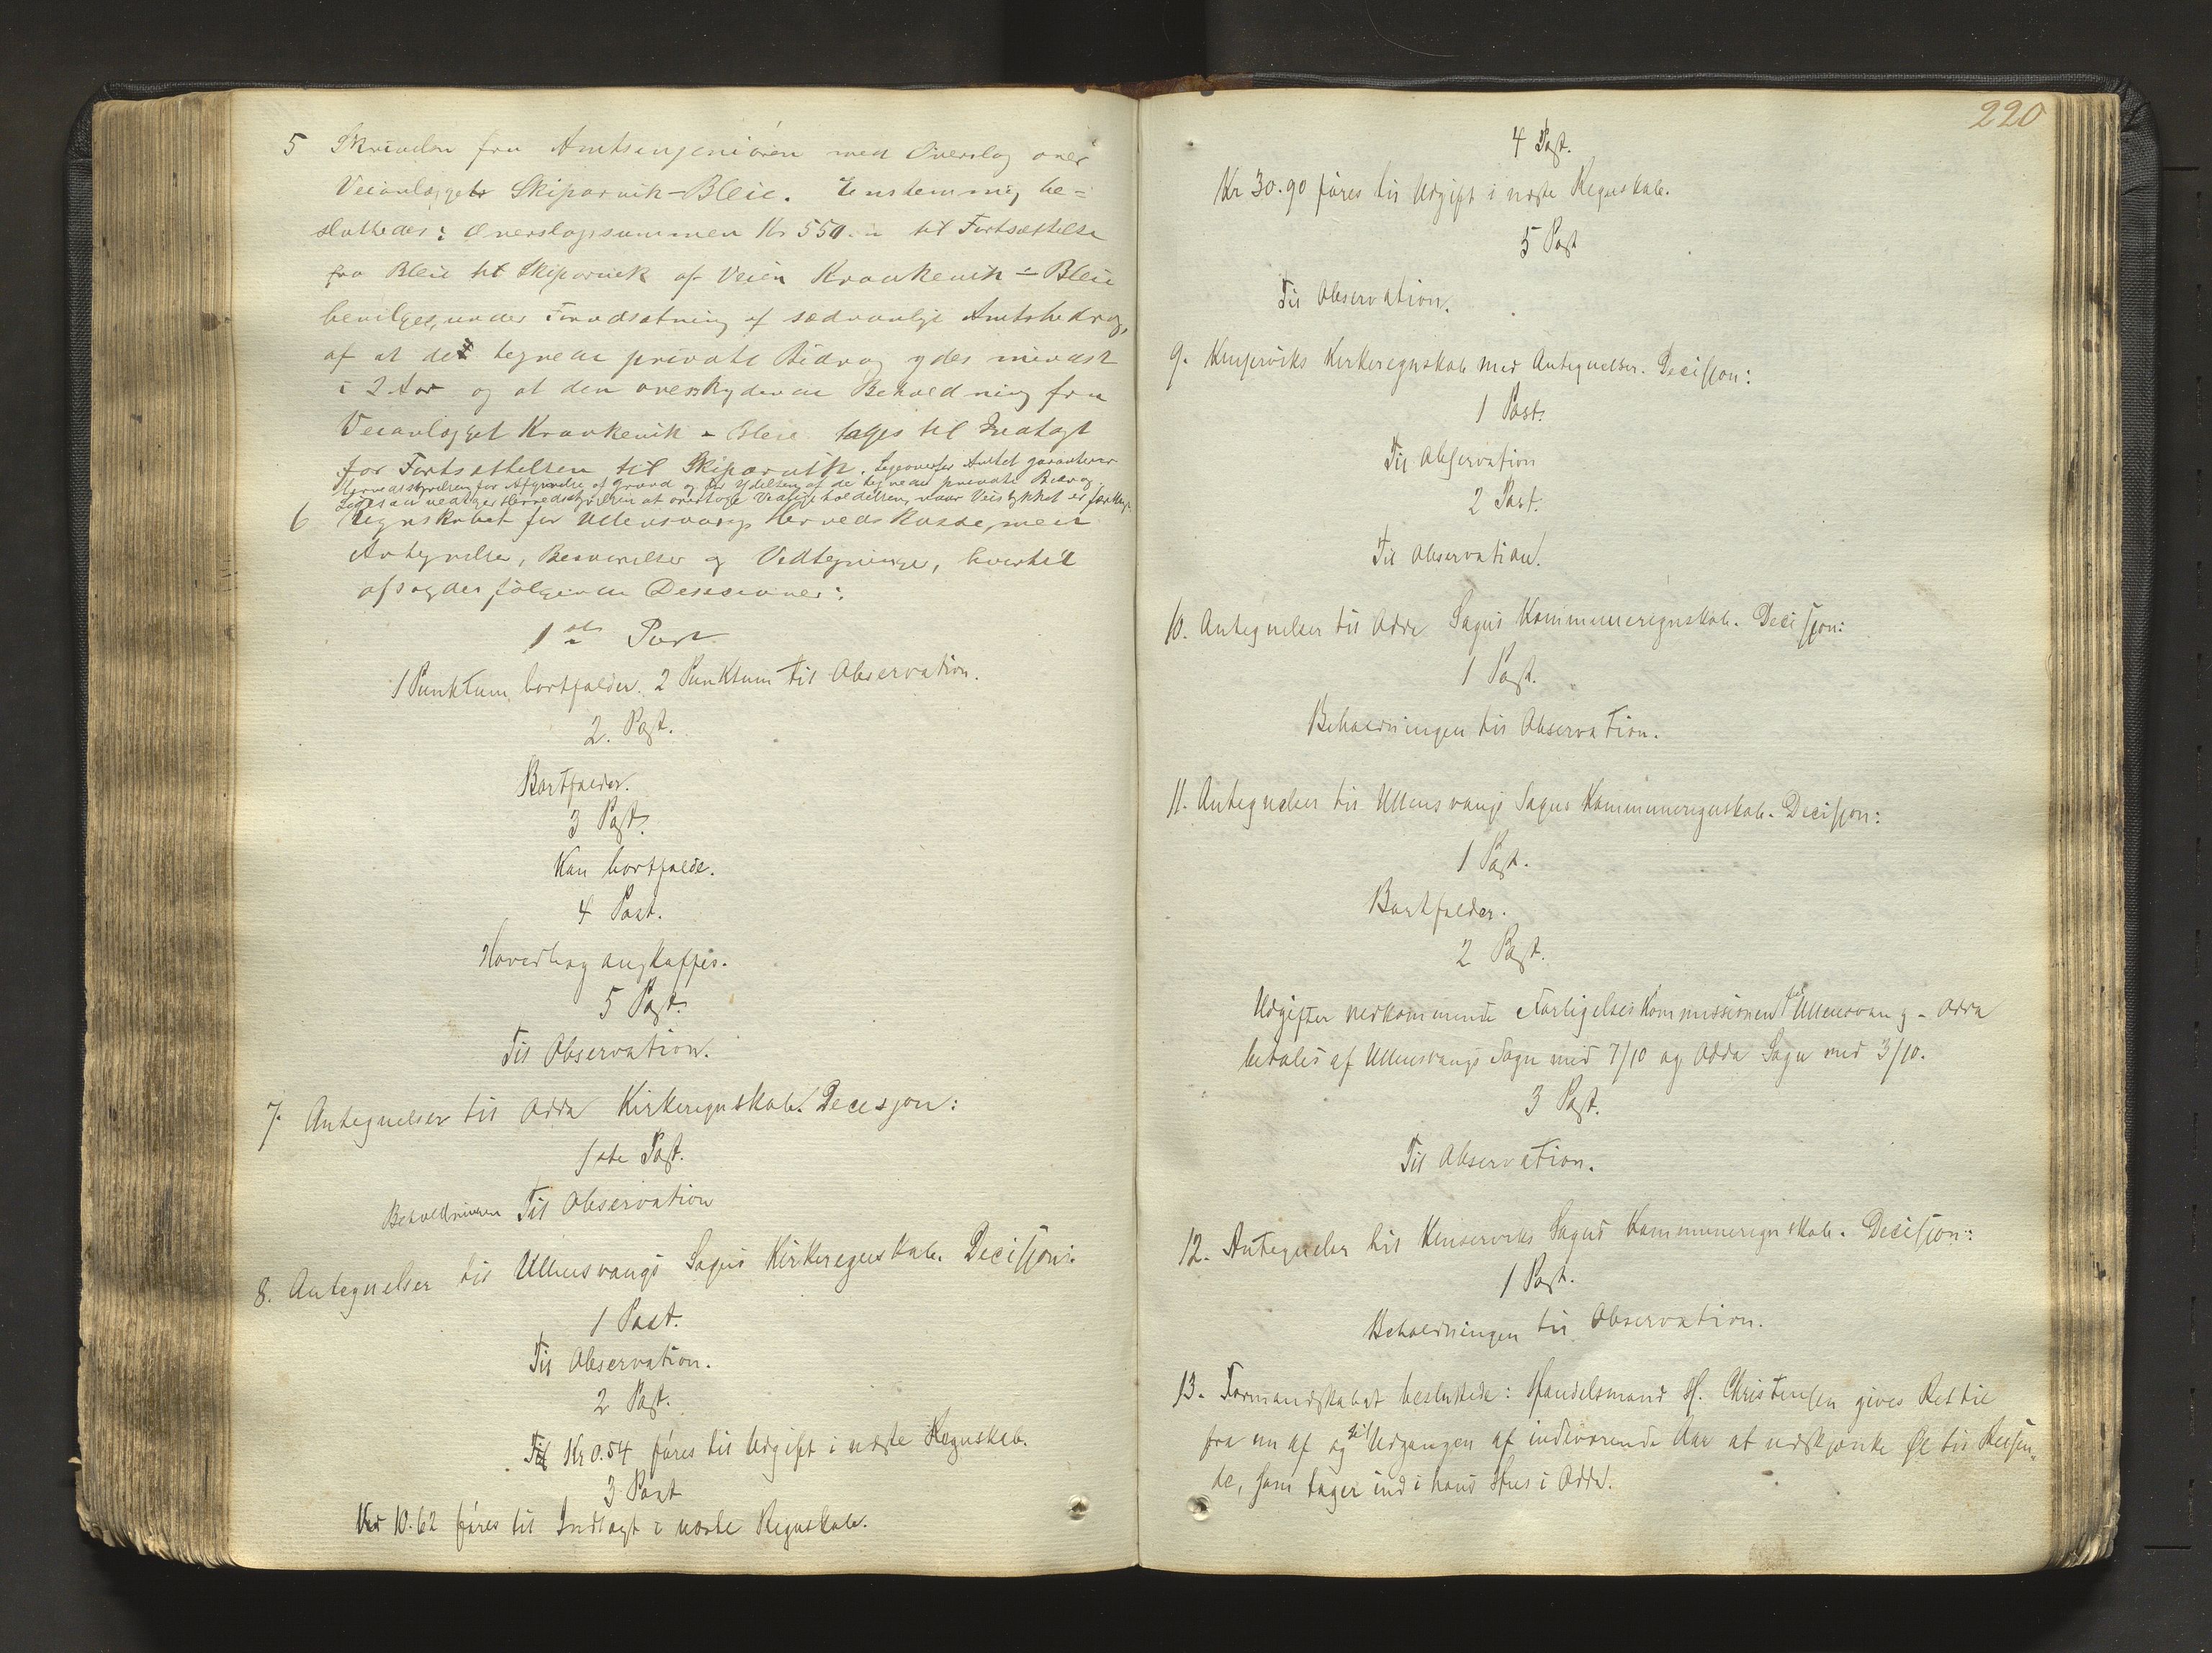 5 Skrivelse fra Amtsingeniören med Overslag over
Veianlægget Skiparvik - Bleie. Enstemmig be=
sluttedes: Overslagssummen Kr 550. til Fortsættelse
fra Bleie til Skiparvik af Veien Kraakevik - Bleie
bevilges, under Forudsætning af sædvanligt Amtsbidrag,
af at de tegnede private Bidrag ydes mindst
i 2 Aar og at den overskydende Beholdning fra
Veianlægget Kraakevik - Bleie tages til Indtægt
for Fortsættelsen til Skiparvik. Ligeoverfor Amtet garanterer
Herredsstyrelsen for Afgivelse af Grund og for Ydelsen af de tegnede private Bidrag.
Ligesaa vedtager Herredsstyrelsen at overtage Vedligeholdelsen, naar Veistykket er færdigt.
6 Regnskabet for Ullensvangs Herredskasse, med
Antegnelser, Besvarelser og Vedtegninger, hvortil
afsagdes følgende Decisioner:
1ste Post
1 Punktum bortfalder. 2 Punktum til Observation.
2. Post.
Bortfalder.
3 Post.
Kan bortfalde.
4 Post.
Hovedbog anskaffes.
5 Post.
Til Observation.
7. Antegnelser til Odda Kirkeregnskab. Decisjon:
1ste Post.
Beholdningen Til Observation
8. Antegnelser til Ullensvangs Sogns Kirkeregnskab. Decisjon:
1 Post.
Til Observation.
2 Post.
Til Kr 0.54 føres til Udgift i næste Regnskab.
3 Post
Kr 10.62 føres til Indtægt i næste Regnskab.
220
4 Post.
Kr 30.90 føres til Udgift i næste Regnskab.
5 Post
Til Observation.
9. Kinserviks Kirkeregnskab med Antegnelser. Decisjon:
1 Post.
Til Observation
2 Post.
Til Observation.
10. Antegnelser til Odda Sogns Kommuneregnskab. Decisjon:
1 Post.
Beholdningen til Observation.
11. Antegnelser til Ullensvangs Sogns Kommuneregnskab. Decisjon:
1 Post.
Bortfalder.
2 Post.
Udgifter vedkommende Forligelseskommissionen for Ullensvang - Odda
betales af Ullensvangs Sogn med 7/10 og Odda Sogn med 3/10.
3 Post.
Til Observation.
12. Antegnelser til Kinserviks Sogns Kommuneregnskab. Decisjon:
1 Post.
Beholdningen til Observation.
13. Formandskabet besluttede: Handelsmand H. Christensen gives Ret til
fra nu af og til Udgangen af indeværende Aar at udskjænke Øl til Reisen=
de, som tager ind i hans Hus i Odda.